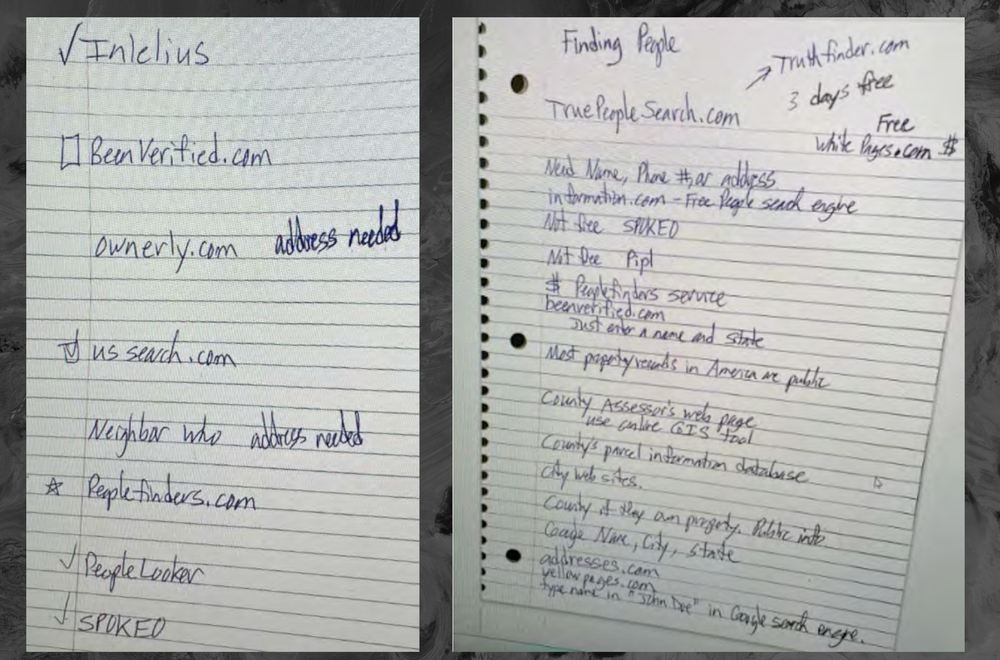 ✓ Intelius
☐ BeenVerified.com
ownerly.com address needed
☑ us search.com
Neighbor who address needed
☆ Peoplefinders.com
✓ PeopleLooker
✓ SPOKEO
Finding People
Truthfinder.com
3 days free
TruePeopleSearch.com
Free
White Pages.com $
Need Name, Phone #, or address
information.com - Free People search engine
Not free SPOKEO
Not free Pipl
$ Peoplefinders service
beenverified.com
Just enter a name and state
Most property records in America are public
County Assessor's web page
use online GIS tool
County's parcel information database
City web sites.
County if they own property. Public info
Google Name, City, State
addresses.com
yellowpages.com
type name in "John Doe" in Google search engine.